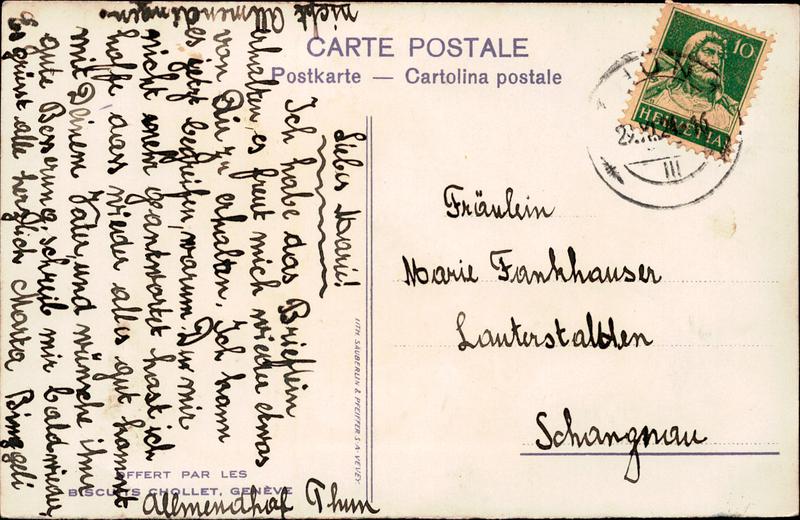 CARTE POSTALE
Postkarte — Cartolina postale
10
HELVETIA
III
Liebes Marie!
Ich habe das Brieflein
erhalten, es freut mich wieder etwas
von Dir zu erhalten, Ich kann
es jetzt begreifen, warum Du mir
nicht mehr geantwortet hast ich
hoffe dass wieder alles gut kommt
mit Deinem Vater, und wünsche ihm
gute Besserung, schreib mir bald wieder,
Es grüsst alle herzlich Marta Binggeli
Allmendhof Thun
nicht Allmendingen.
Fräulein
Marie Fankhauser
Lauterstalden
Schangnau
LITH. SÄUBERLIN & PFEIFFER S.A. VEVEY.
OFFERT PAR LES
BISCUITS CHOLLET, GENÈVE